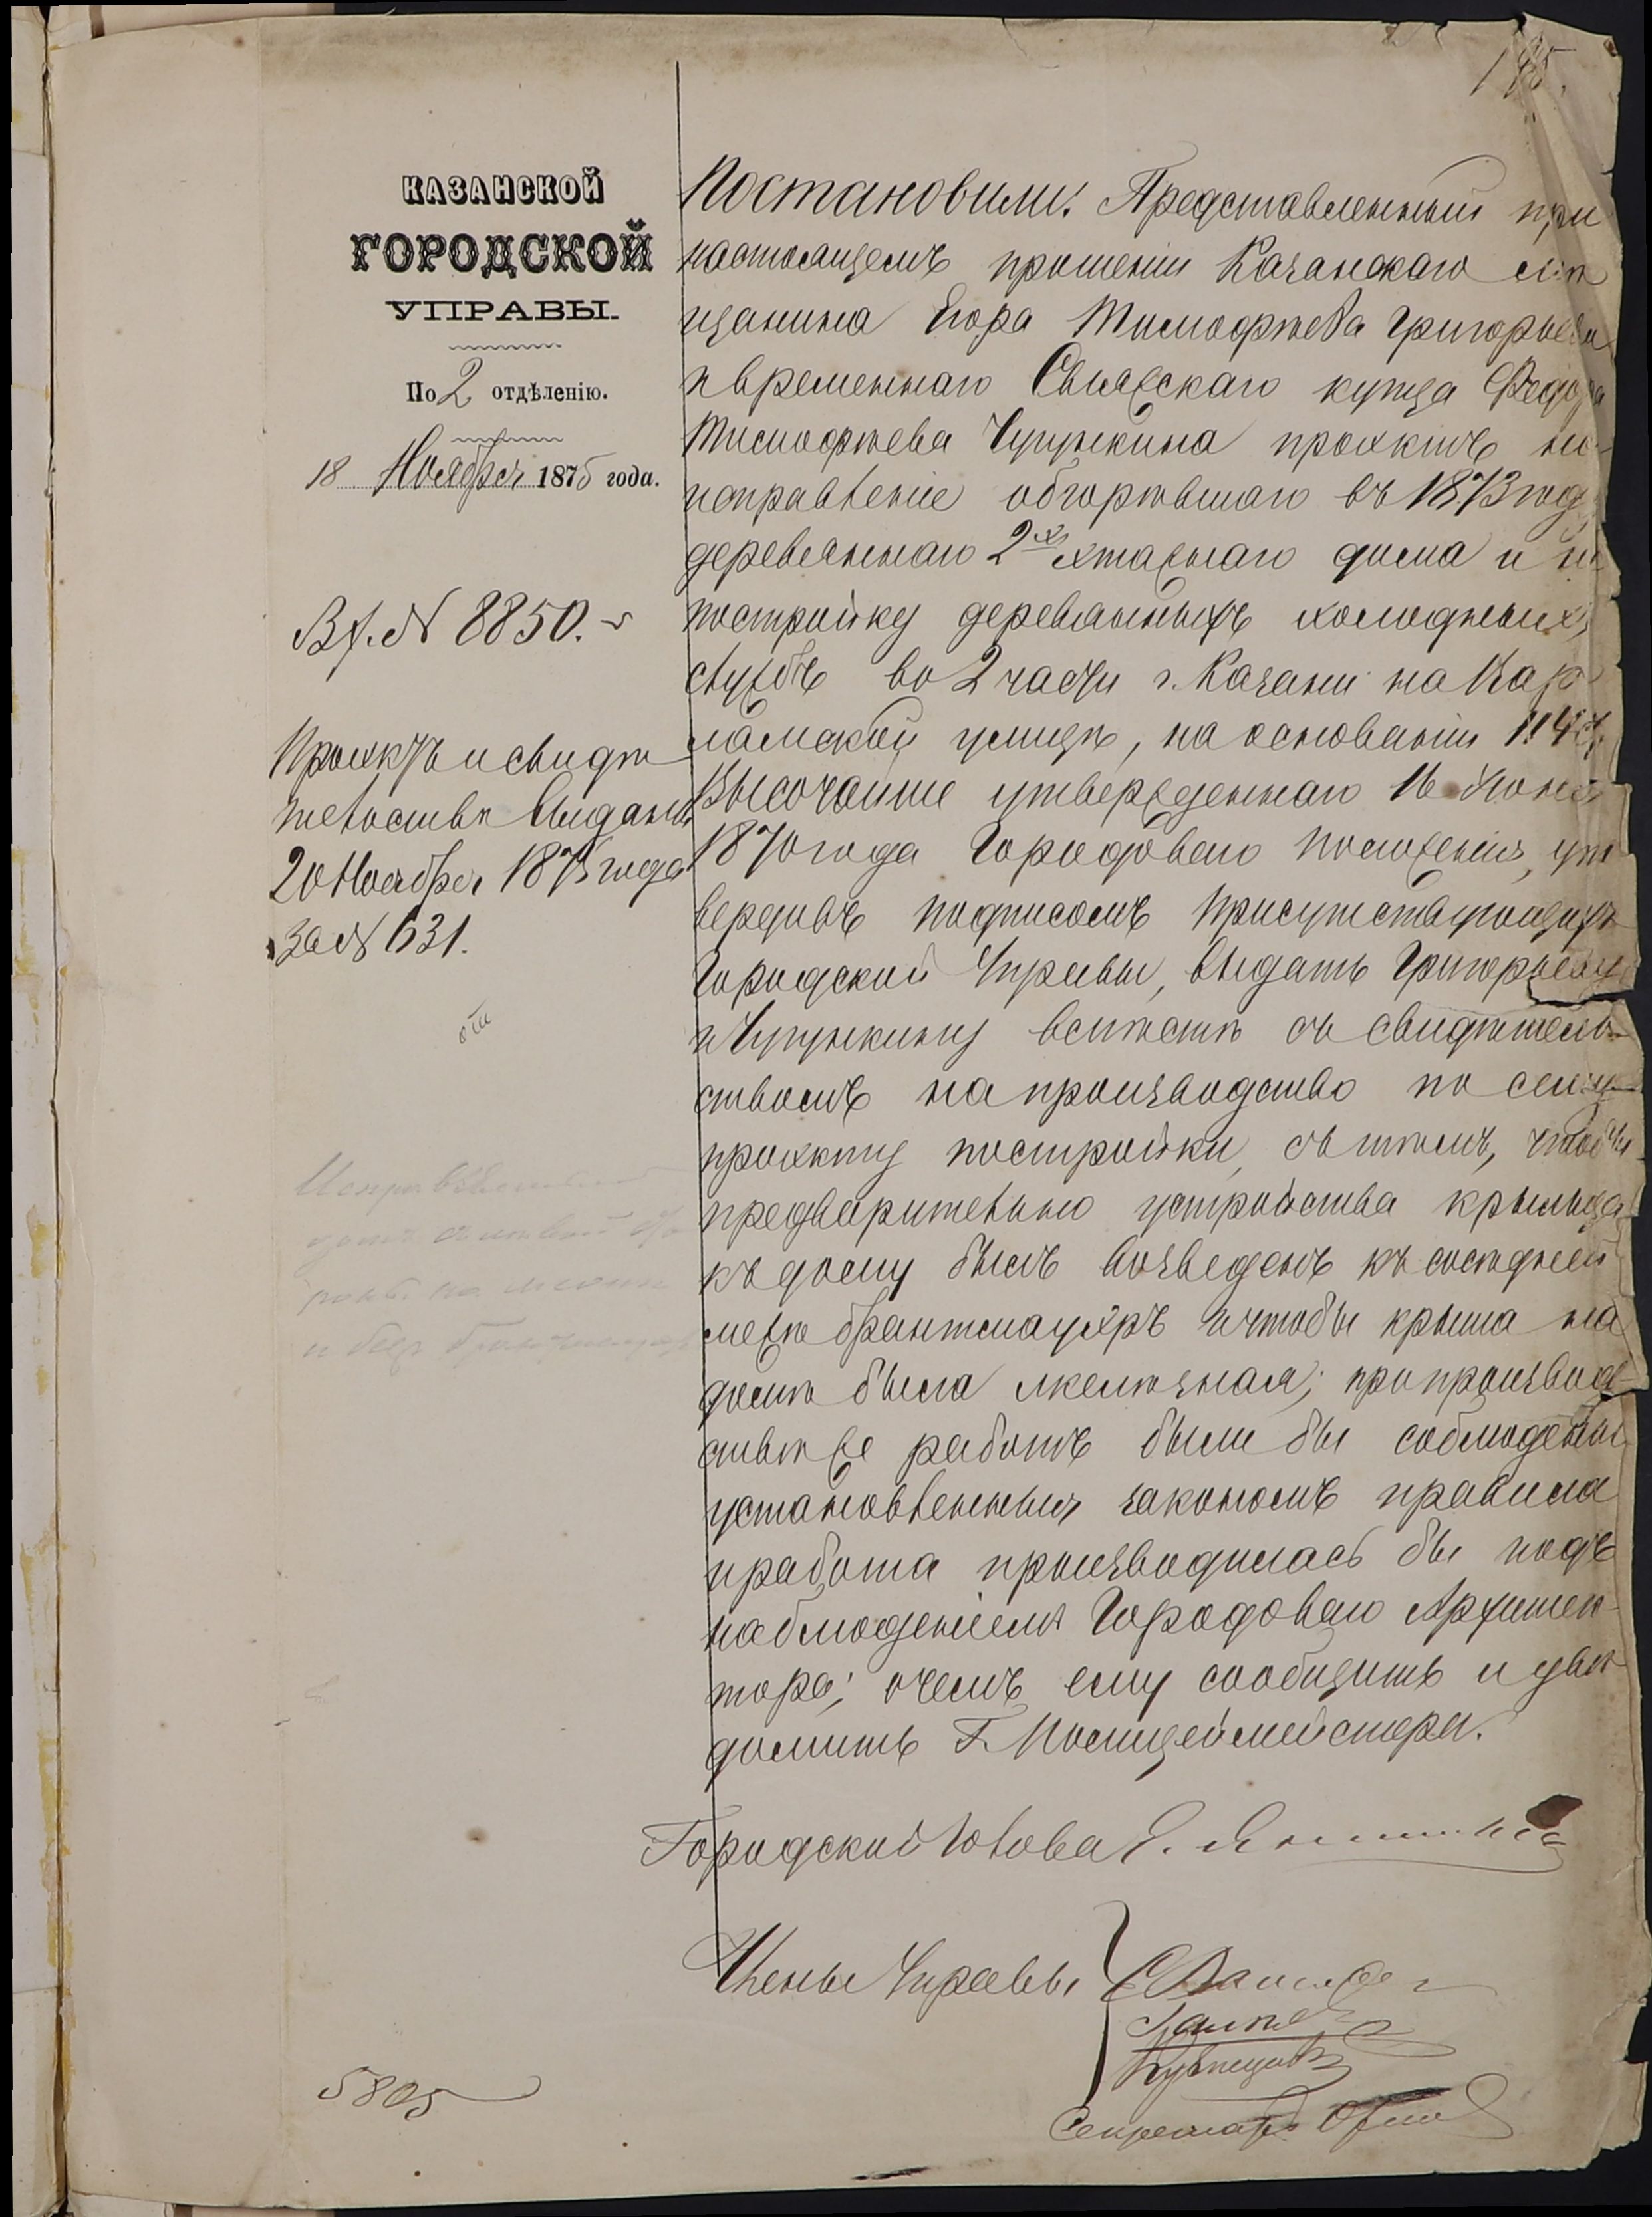 185.
КАЗАНСКОЙ
ГОРОДСКОЙ
УПРАВЫ.
По 2 отдѣленію.
18 Ноября 1875 года.
Вх. № 8850.
Проэктъ и свидѣ
тельство выданы
20 Ноября 1875 года
за № 631.
Постановили: Представленный при
настоящемъ прошеніи Казанскаго мѣ
щанина Егора Тимофѣева Григорьева
и временнаго Свіяжскаго купца Федора
Тимофѣева Чупункина проэктъ на
исправленіе обгорѣвшаго въ 1873 году
деревяннаго 2х этажнаго дома и на
постройку деревянныхъ холодныхъ
службъ во 2 части г. Казани на
улицѣ, на основаніи 114 ст.
Высочайше утвержденнаго 16 Іюня
1870 года Городоваго положенія, ут
вердивъ подписомъ присутствующихъ
Городской Управы, выдать Григорьеву
и Чупункину вмѣстѣ съ свидѣтель
ствомъ на производство по сему
проэкту постройки, съ тѣмъ, чтобы
предварительно устройства крыльца
къ дому былъ возведенъ къ сосѣдней
межѣ брантмауэръ и чтобы крыша на
домѣ была желѣзная; при производ
ствѣ же работъ были бы соблюдены
установленныя закономъ правила
и работа производилась бы подъ
наблюденіемъ Городоваго Архитек
тора; о чемъ ему сообщить и увѣ
домить Г. Полицеймейстера.
Городской Голова Е.
Члены Управы
Кузнецовъ
Секретарь
5805